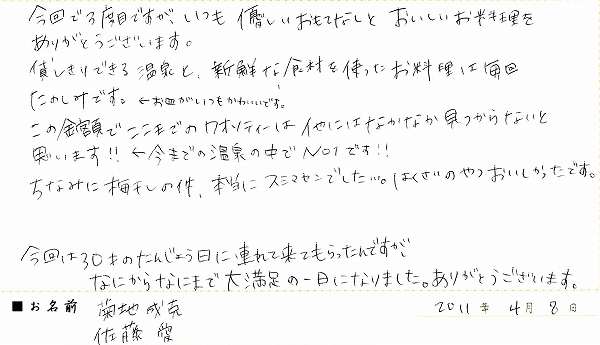 今回で3度目ですが、いつも優しいおもてなしとおいしいお料理を
ありがとうございます。
貸しきりできる温泉と、新鮮な食材を使ったお料理は毎回
たのしみです。←お皿がいつもかわいいです。
この金額でここまでのクオリティーは他にはなかなか見つからないと
思います!!←今までの温泉の中でNO1です!!
ちなみに梅干しの件、本当にスミマセンでした…。はくさいのやつおいしかったです。
今回は30才のたんじょう日に連れて来てもらったんですが、
なにからなにまで大満足の一日になりました。ありがとうございます。
■お名前 菊地成克 2011年4月8日
佐藤愛